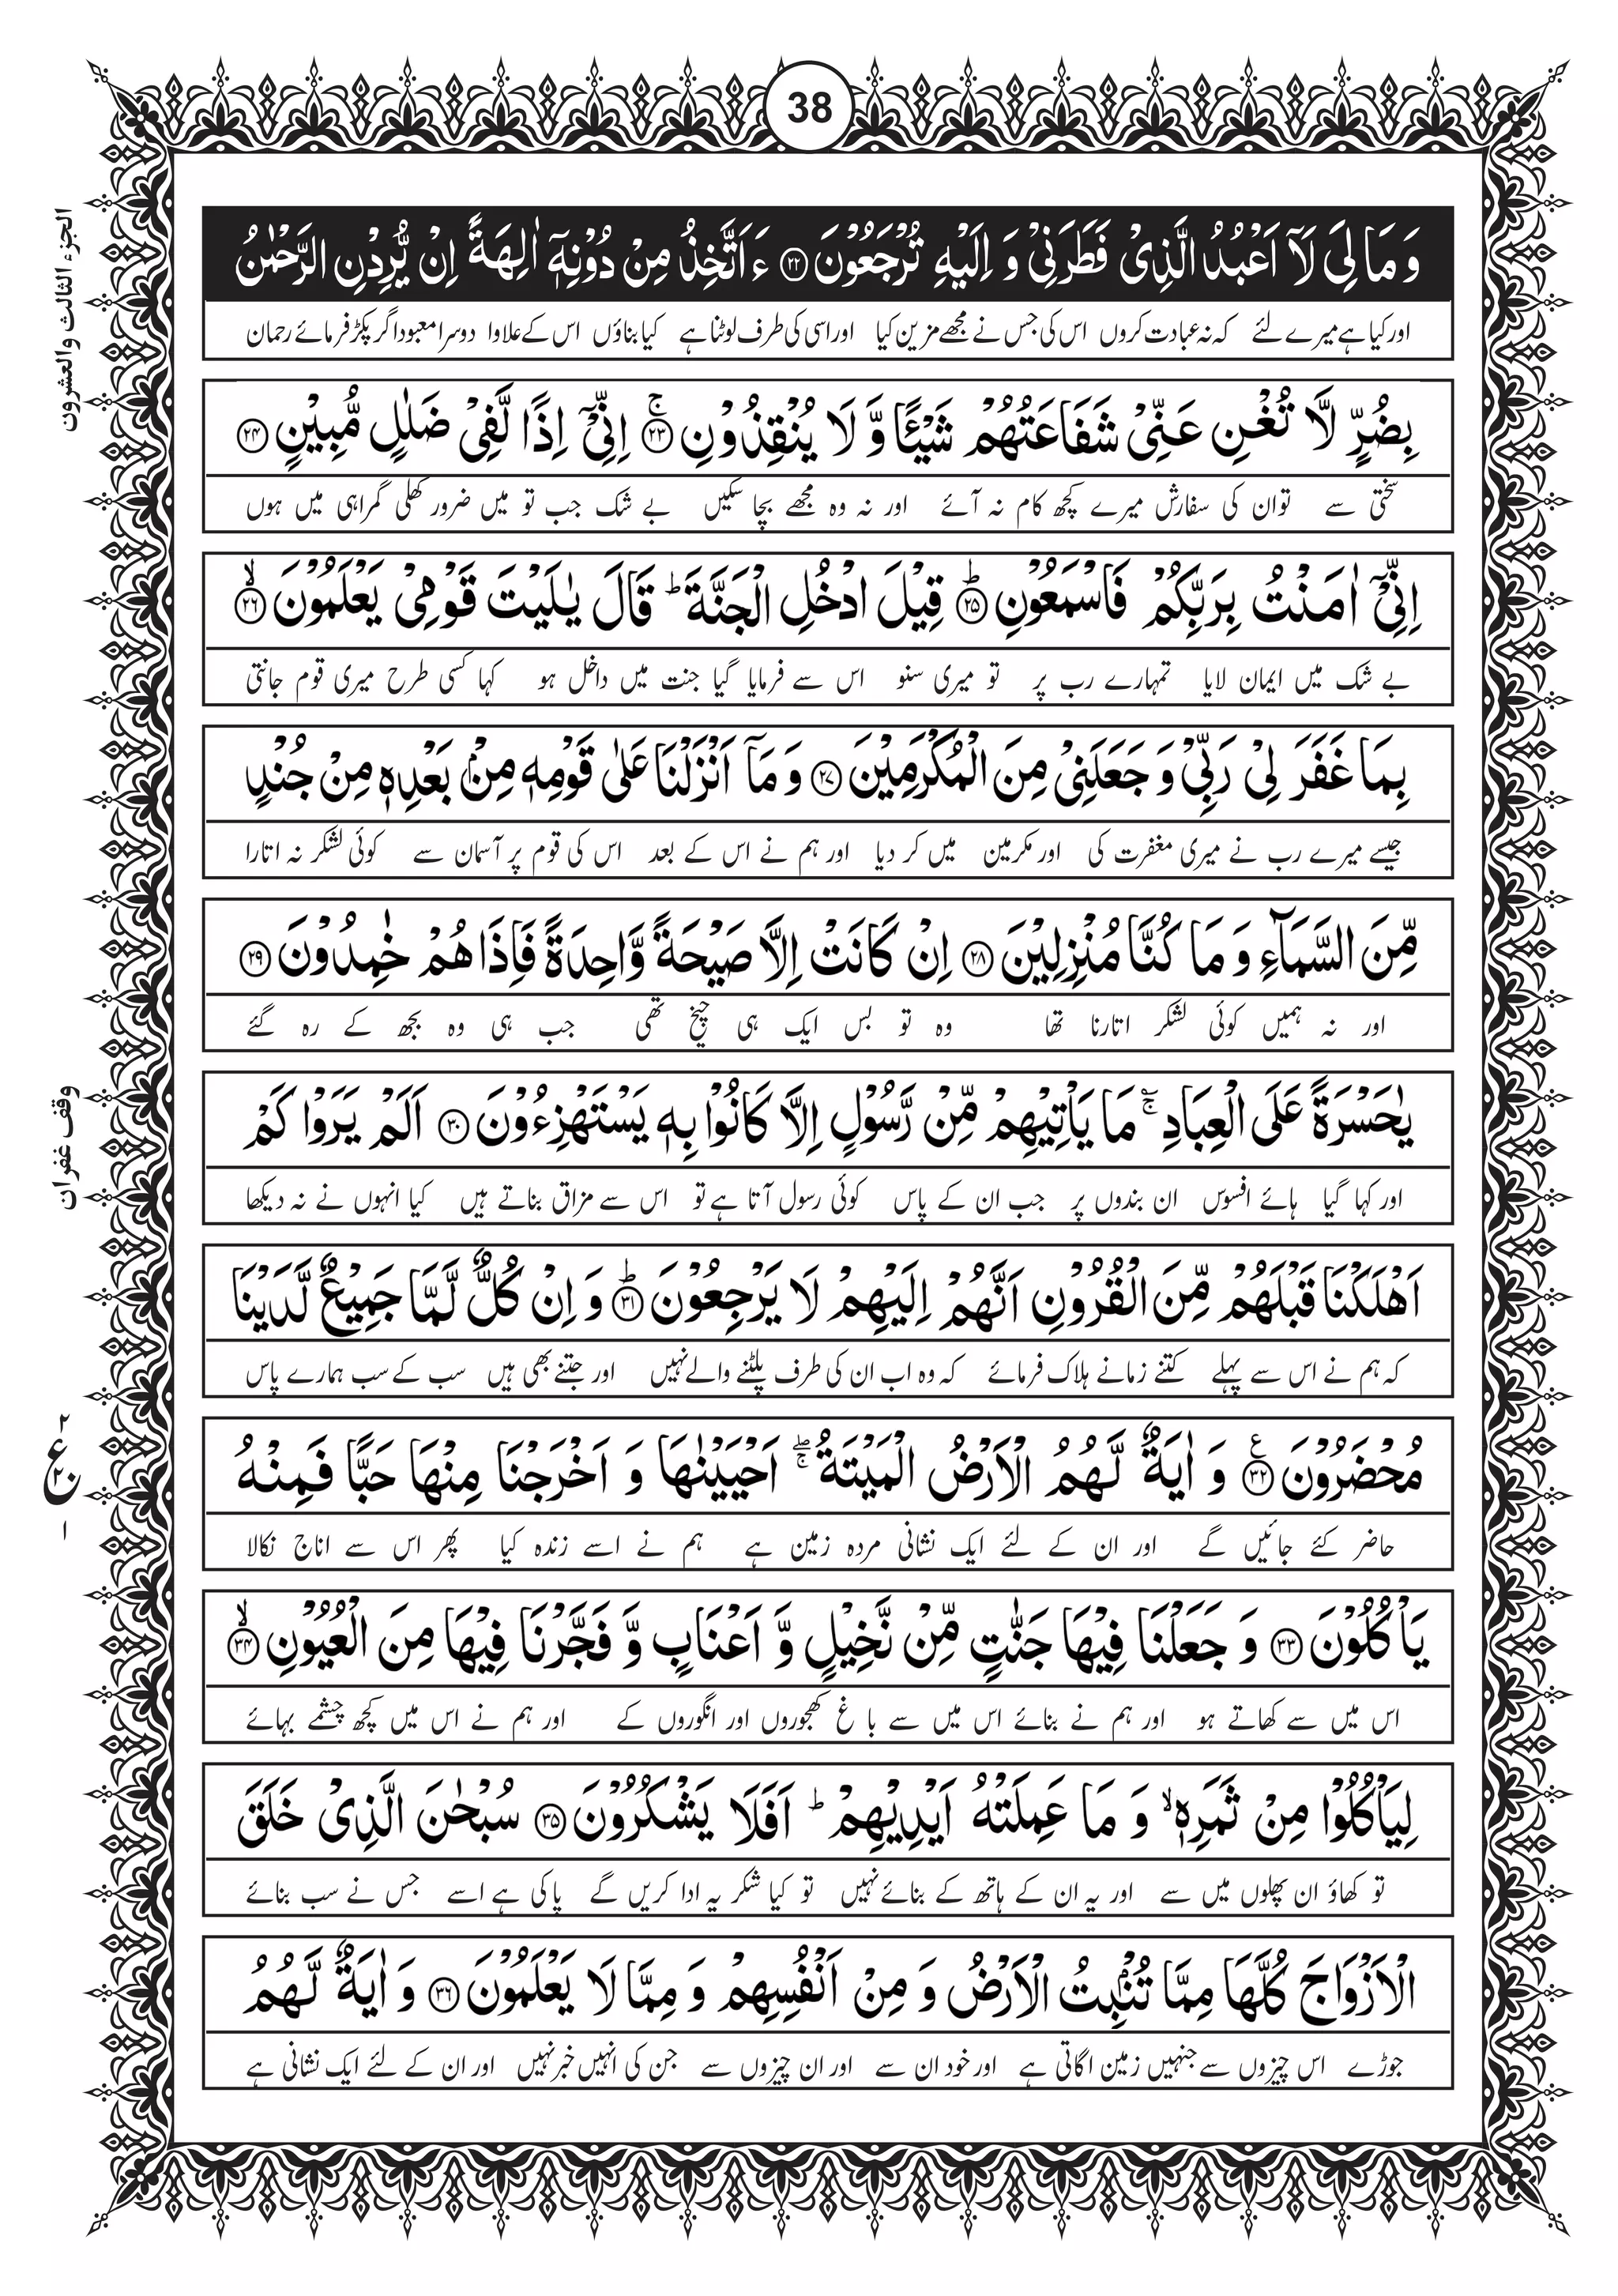 38
الجزء الثالث والعشرون
وَ مَا لِیَ لَاۤ اَعْبُدُ الَّذِیْ فَطَرَنِیْ وَ اِلَیْهِ تُرْجَعُوْنَ ﴿۲۲﴾ ءَاَتَّخِذُ مِنْ دُوْنِهٖۤ اٰلِهَةً اِنْ یُّرِدْنِ الرَّحْمٰنُ
اور کیا ہے میرے لئے کہ نہ عبادت کروں اس کی جس نے مجھے مزین کیا اور اسی کی طرف لوٹنا ہے کیا بناؤں اس کے علاوا دوسرا معبود اگر پکڑ فرمائے رحمان
بِضُرٍّ لَّا تُغْنِ عَنِّیْ شَفَاعَتُهُمْ شَیْـًٔا وَّ لَا یُنْقِذُوْنِ ﴿ۚ۲۳﴾ اِنِّیْۤ اِذًا لَّفِیْ ضَلٰلٍ مُّبِیْنٍ ﴿۲۴﴾
سختی سے تو ان کی سفارش میرے کچھ کام نہ آئے اور نہ وہ مجھے بچا سکیں بے شک جب تو میں ضرور کھلی گمراہی میں ہوں
اِنِّیْۤ اٰمَنْتُ بِرَبِّكُمْ فَاسْمَعُوْنِ ﴿ؕ۲۵﴾ قِیْلَ ادْخُلِ الْجَنَّةَ ؕ قَالَ یٰلَیْتَ قَوْمِیْ یَعْلَمُوْنَ ﴿ۙ۲۶﴾
بے شک میں ایمان لایا تمہارے رب پر تو میری سنو اس سے فرمایا گیا جنت میں داخل ہو کہا کسی طرح میری قوم جانتی
بِمَا غَفَرَ لِیْ رَبِّیْ وَ جَعَلَنِیْ مِنَ الْمُكْرَمِیْنَ ﴿۲۷﴾ وَ مَاۤ اَنْزَلْنَا عَلٰی قَوْمِهٖ مِنْۢ بَعْدِهٖ مِنْ جُنْدٍ
جیسے میرے رب نے میری مغفرت کی اور مکرمین میں کر دیا اور ہم نے اس کے بعد اس کی قوم پر آسمان سے کوئی لشکر نہ اتارا
مِّنَ السَّمَآءِ وَ مَا كُنَّا مُنْزِلِیْنَ ﴿۲۸﴾ اِنْ كَانَتْ اِلَّا صَیْحَةً وَّاحِدَةً فَاِذَا هُمْ خٰمِدُوْنَ ﴿۲۹﴾
اور نہ ہمیں کوئی لشکر اتارنا تھا وہ تو بس ایک ہی چیخ تھی جب ہی وہ بجھ کے رہ گئے
یٰحَسْرَةً عَلَی الْعِبَادِ ۚ مَا یَاْتِیْهِمْ مِّنْ رَّسُوْلٍ اِلَّا كَانُوْا بِهٖ یَسْتَهْزِءُوْنَ ﴿۳۰﴾ اَلَمْ یَرَوْا كَمْ
اور کہا گیا ہائے افسوس ان بندوں پر جب ان کے پاس کوئی رسول آتا ہے تو اس سے مزاق بناتے ہیں کیا انہوں نے نہ دیکھا
وقف غفران
اَهْلَكْنَا قَبْلَهُمْ مِّنَ الْقُرُوْنِ اَنَّهُمْ اِلَیْهِمْ لَا یَرْجِعُوْنَ ﴿ؕ۳۱﴾ وَ اِنْ كُلٌّ لَّمَّا جَمِیْعٌ لَّدَیْنَا
کہ ہم نے اس سے پہلے کتنے زمانے ہلاک فرمائے کہ وہ اب ان کی طرف پلٹنے والے نہیں اور جتنے بھی ہیں سب کے سب ہمارے پاس
مُحْضَرُوْنَ ﴿۳۲﴾ وَ اٰیَةٌ لَّهُمُ الْاَرْضُ الْمَیْتَةُ ۖۚ اَحْیَیْنٰهَا وَ اَخْرَجْنَا مِنْهَا حَبًّا فَمِنْهُ
۲ ع ۲۰ ۱
حاضر کئے جائیں گے اور ان کے لئے ایک نشانی مردہ زمین ہے ہم نے اسے زندہ کیا پھر اس سے اناج نکالا
یَاْكُلُوْنَ ﴿۳۳﴾ وَ جَعَلْنَا فِیْهَا جَنّٰتٍ مِّنْ نَّخِیْلٍ وَّ اَعْنَابٍ وَّ فَجَّرْنَا فِیْهَا مِنَ الْعُیُوْنِ ﴿ۙ۳۴﴾
اس میں سے کھاتے ہو اور ہم نے بنائے اس میں سے باغ کھجوروں اور انگوروں کے اور ہم نے اس میں کچھ چشمے بہائے
لِیَاْكُلُوْا مِنْ ثَمَرِهٖ ۙ وَ مَا عَمِلَتْهُ اَیْدِیْهِمْ ؕ اَفَلَا یَشْكُرُوْنَ ﴿۳۵﴾ سُبْحٰنَ الَّذِیْ خَلَقَ
تو کھاؤ ان پھلوں میں سے اور یہ ان کے ہاتھ کے بنائے نہیں تو کیا شکر یہ ادا کریں گے پاکی ہے اسے جس نے سب بنائے
الْاَزْوَاجَ كُلَّهَا مِمَّا تُنْۢبِتُ الْاَرْضُ وَ مِنْ اَنْفُسِهِمْ وَ مِمَّا لَا یَعْلَمُوْنَ ﴿۳۶﴾ وَ اٰیَةٌ لَّهُمُ
جوڑے اس چیزوں سے جنہیں زمین اگاتی ہے اور خود ان سے اور ان چیزوں سے جن کی انہیں خبر نہیں اور ان کے لئے ایک نشانی ہے